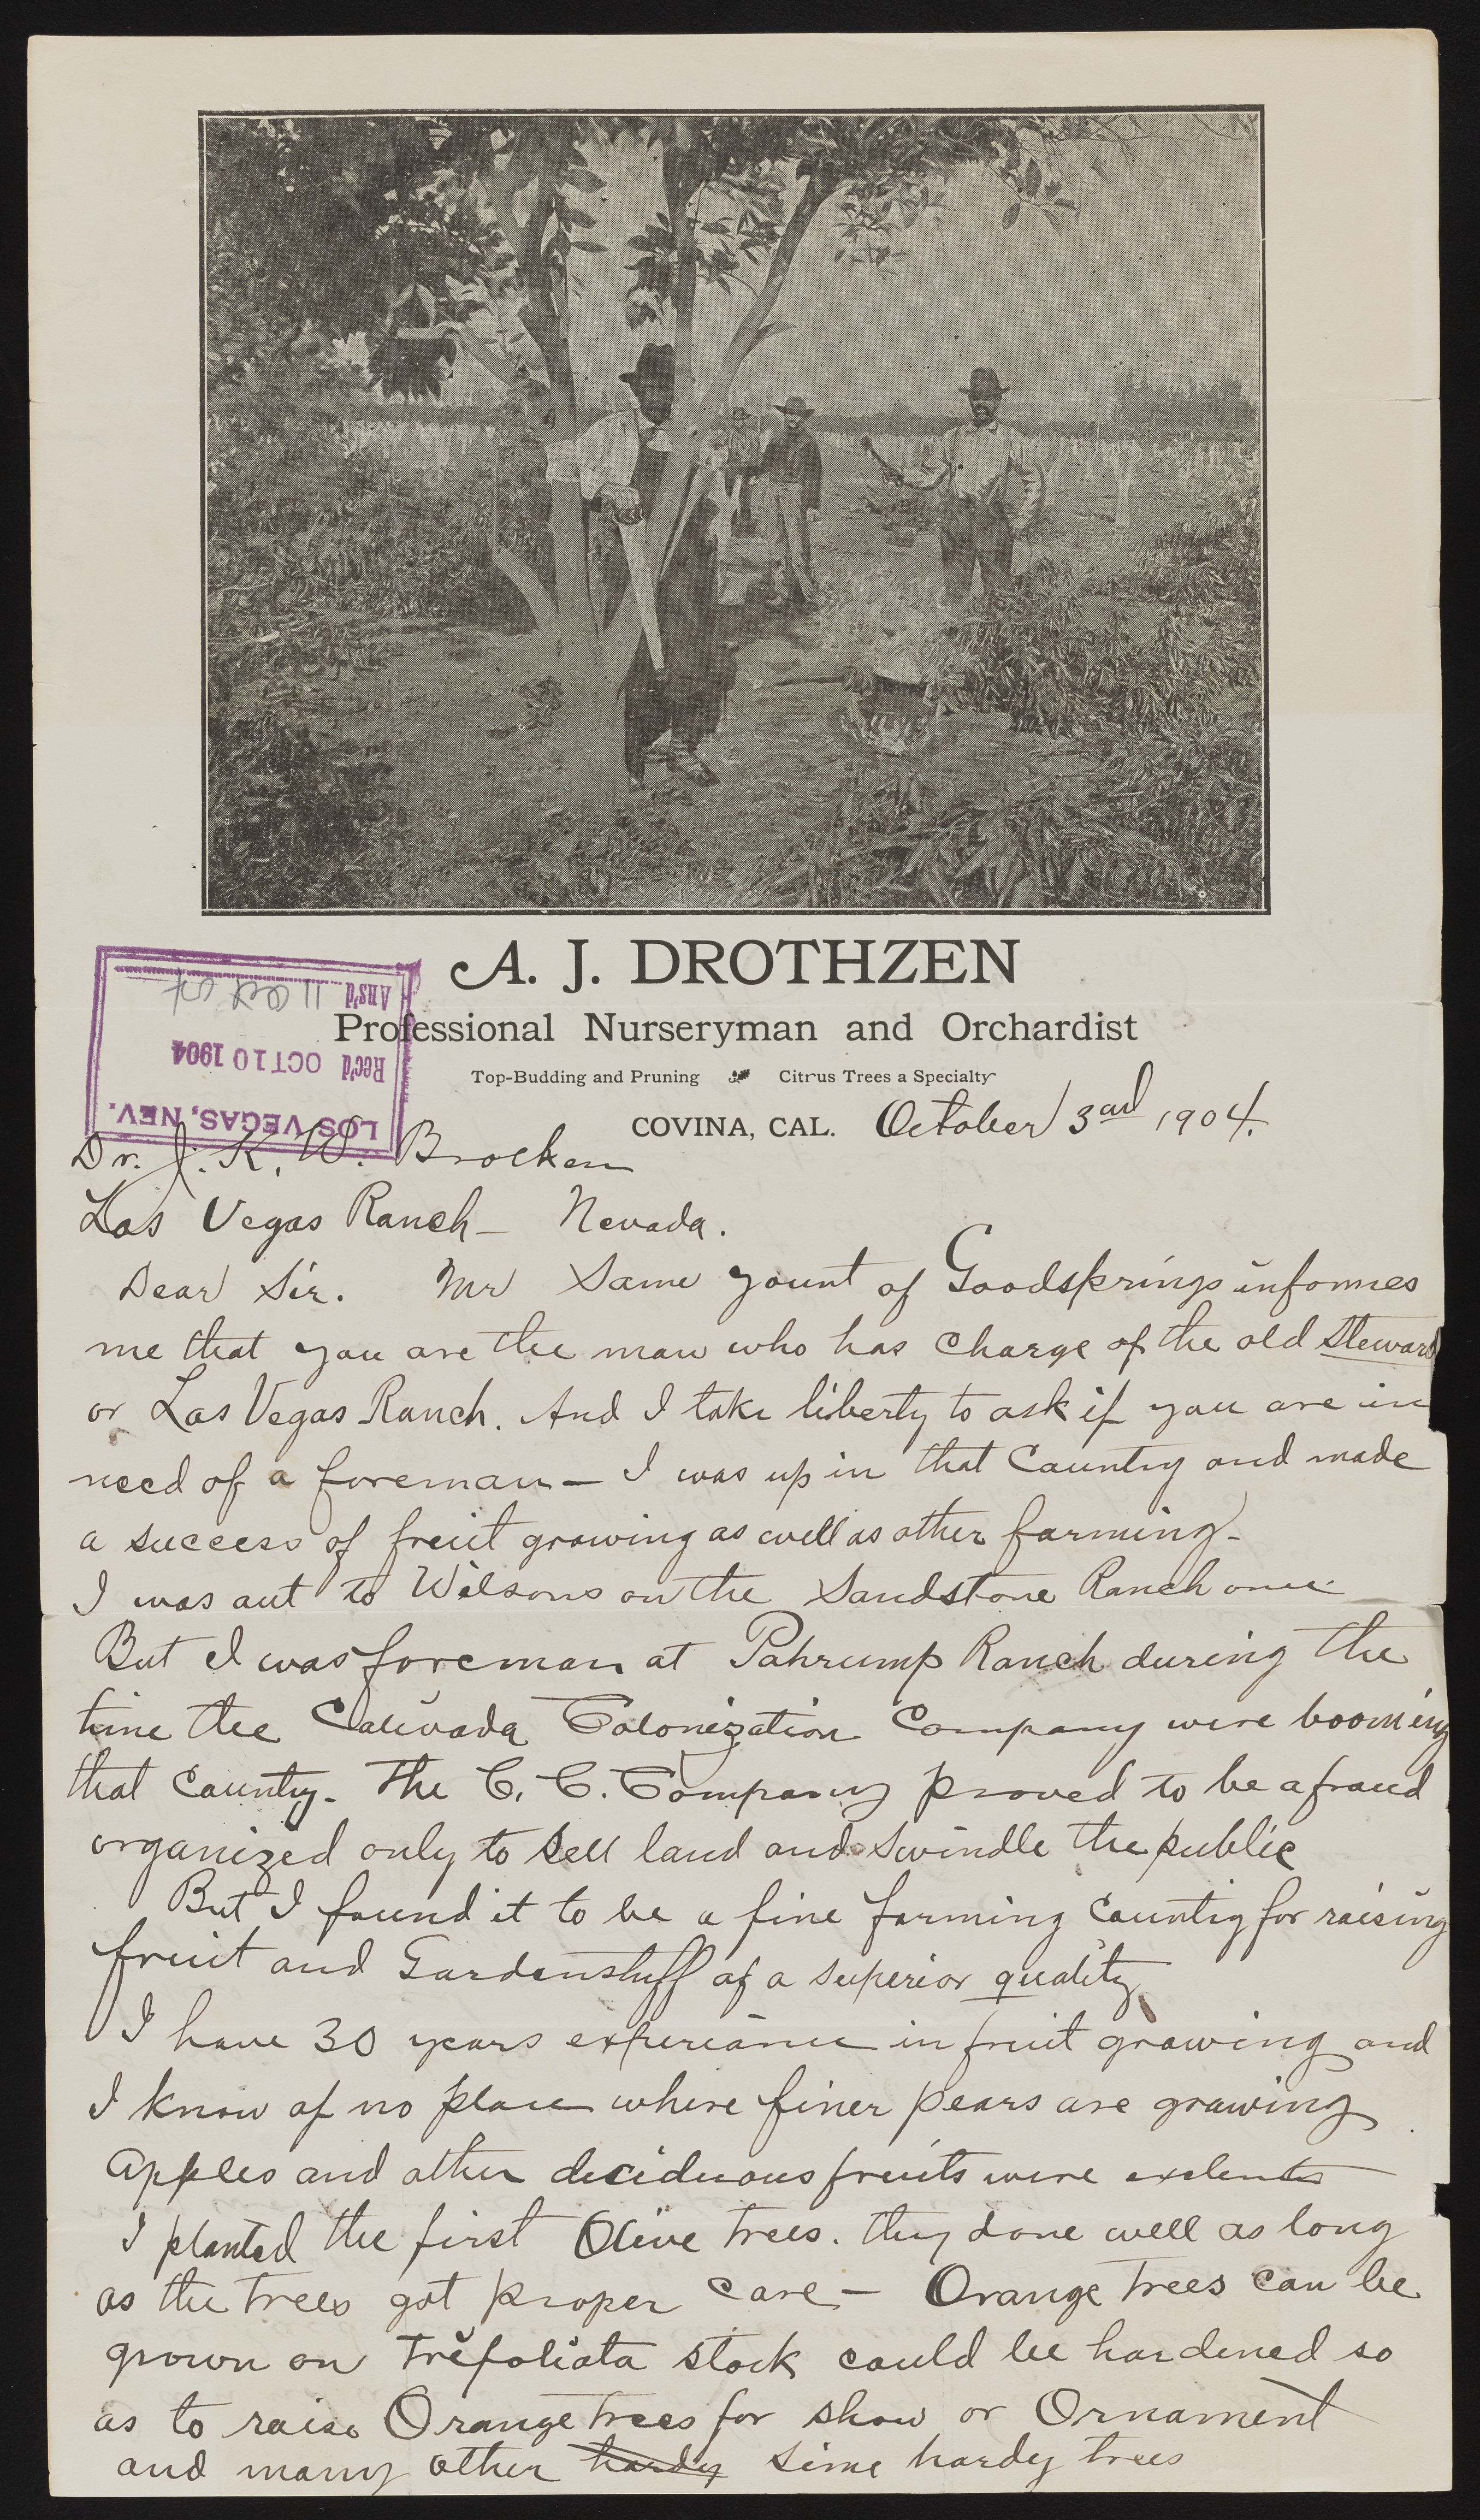 A. J. DROTHZEN
Professional Nurseryman and Orchardist
Top-Budding and Pruning Citrus Trees a Specialty
COVINA, CAL. October 3rd 1904.
LOS VEGAS, NEV.
Rec'd OCT 10 1904
Ans'd 11 Oct 04
Dr. J. K. W. Brocken
Las Vegas Ranch — Nevada.
Dear Sir. Mr Same Yount of Goodsprings informes
me that you are the man who has charge of the old Steward
or Las Vegas Ranch. And I take liberty to ask if you are in
need of a foreman — I was up in that Country and made
a success of fruit growing as well as other farming -
I was out to Wilsons on the Sandstone Ranch once
But I was foreman at Pahrump Ranch during the
time the Calivada Colonization Company were booming
that County. The C. C. Company proved to be a fraud
organized only to sell land and swindle the public
But I found it to be a fine farming Country for raising
fruit and Gardenstuff of a superior quality
I have 30 years experiance in fruit growing and
I know of no place where finer pears are growing
Apples and other deciduous fruits were exelents
I planted the first Olive trees. they done well as long
as the trees got proper care — Orange trees can be
grown on Trifoliata stock could be hardened so
as to raise Orange trees for show or Ornament
and many other hardy Sime hardy trees